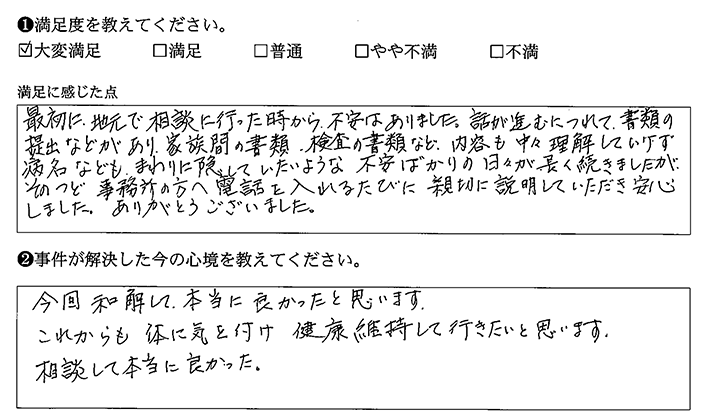 ❶満足度を教えてください。
☑大変満足 □満足 □普通 □やや不満 □不満
満足に感じた点
最初に、地元で相談に行った時から、不安はありました。話が進むにつれて、書類の
提出などがあり、家族間の書類、検査の書類など、内容も中々理解していけず
病名なども、まわりに隠していたいような 不安ばかりの日々が長く続きましたが、
そのつど 事務所の方へ電話を入れるたびに 親切に説明していただき安心
しました。 ありがとうございました。
❷事件が解決した今の心境を教えてください。
今回 和解して、本当に良かったと思います。
これからも 体に気を付け 健康維持して行きたいと思います。
相談して本当に良かった。